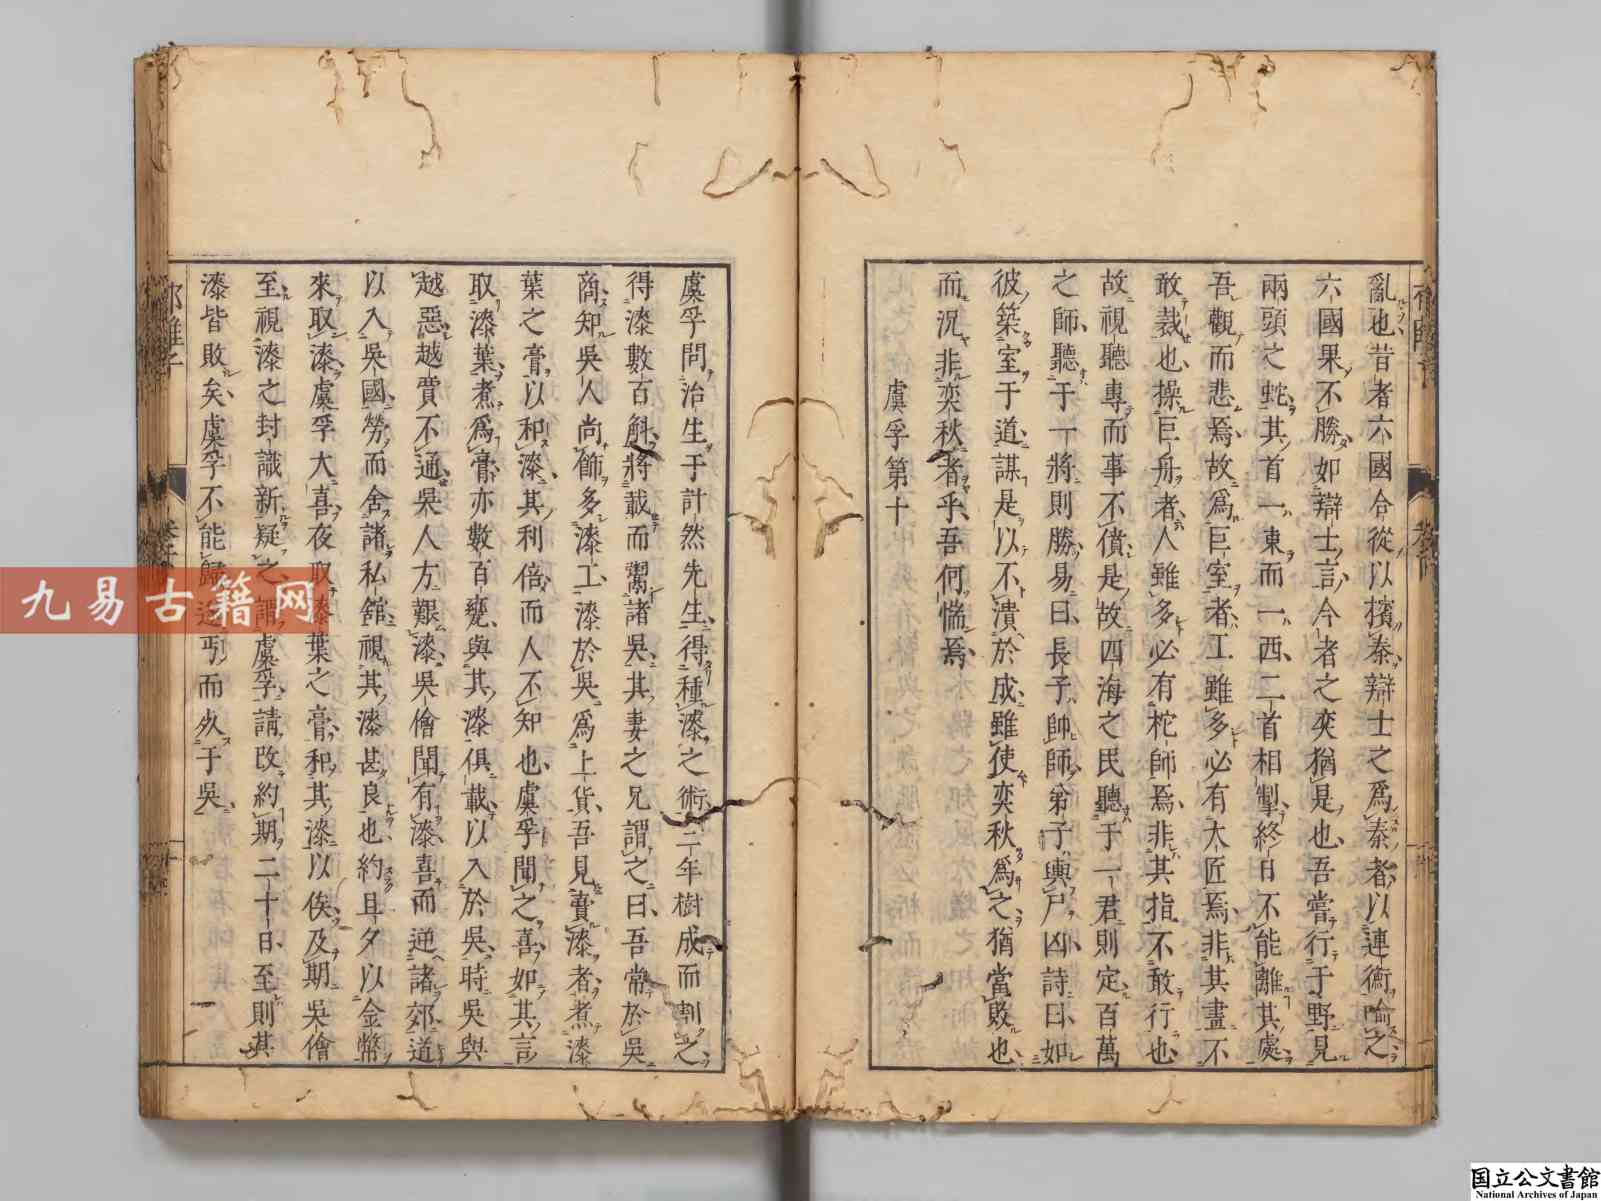 亂也昔者六國合從以擯秦辯士之爲秦者以連衡喻之
六國果不勝如辯士言今者之奕猶是也吾嘗行于野見
兩頭之蛇其首一東而一西二首相掣終日不能離其處
吾觀而悲焉故爲巨室者工雖多必有大匠焉非其畫不
敢裁也操巨舟者人雖多必有柁師焉非其指不敢行也
故視聽專而事不僨是故四海之民聽于一君則定百萬
之師聽于一將則勝易曰長子帥師弟子輿尸凶詩曰如
彼築室于道謀是以不潰於成雖使奕秋爲之猶當敗也
而况非奕秋者乎吾何惴焉
虞孚第十
虞孚問治生于計然先生得種漆之術二年樹成而割之
得漆數百斛將載而鬻諸吳其妻之兄謂之曰吾常於吳
商知吳人尚飾多漆工漆於吳爲上貨吾見賣漆者煮漆
葉之膏以和漆其利倍而人不知也虞孚聞之喜如其言
取漆葉煮爲膏亦數百甕與其漆俱載以入於吳時吳與
越惡越賈不通吳人方艱漆吳儈聞有漆喜而逆諸郊道
以入吳國勞而舍諸私舘視其漆甚良也約旦夕以金幣
來取漆虞孚大喜夜取漆葉之膏和其漆以俟及期吳儈
至視漆之封識新疑之謂虞孚請改約期二十日至則其
漆皆敗矣虞孚不能歸遂丐而死于吳
郁離子
九易古籍网
国立公文書館
National Archives of Japan